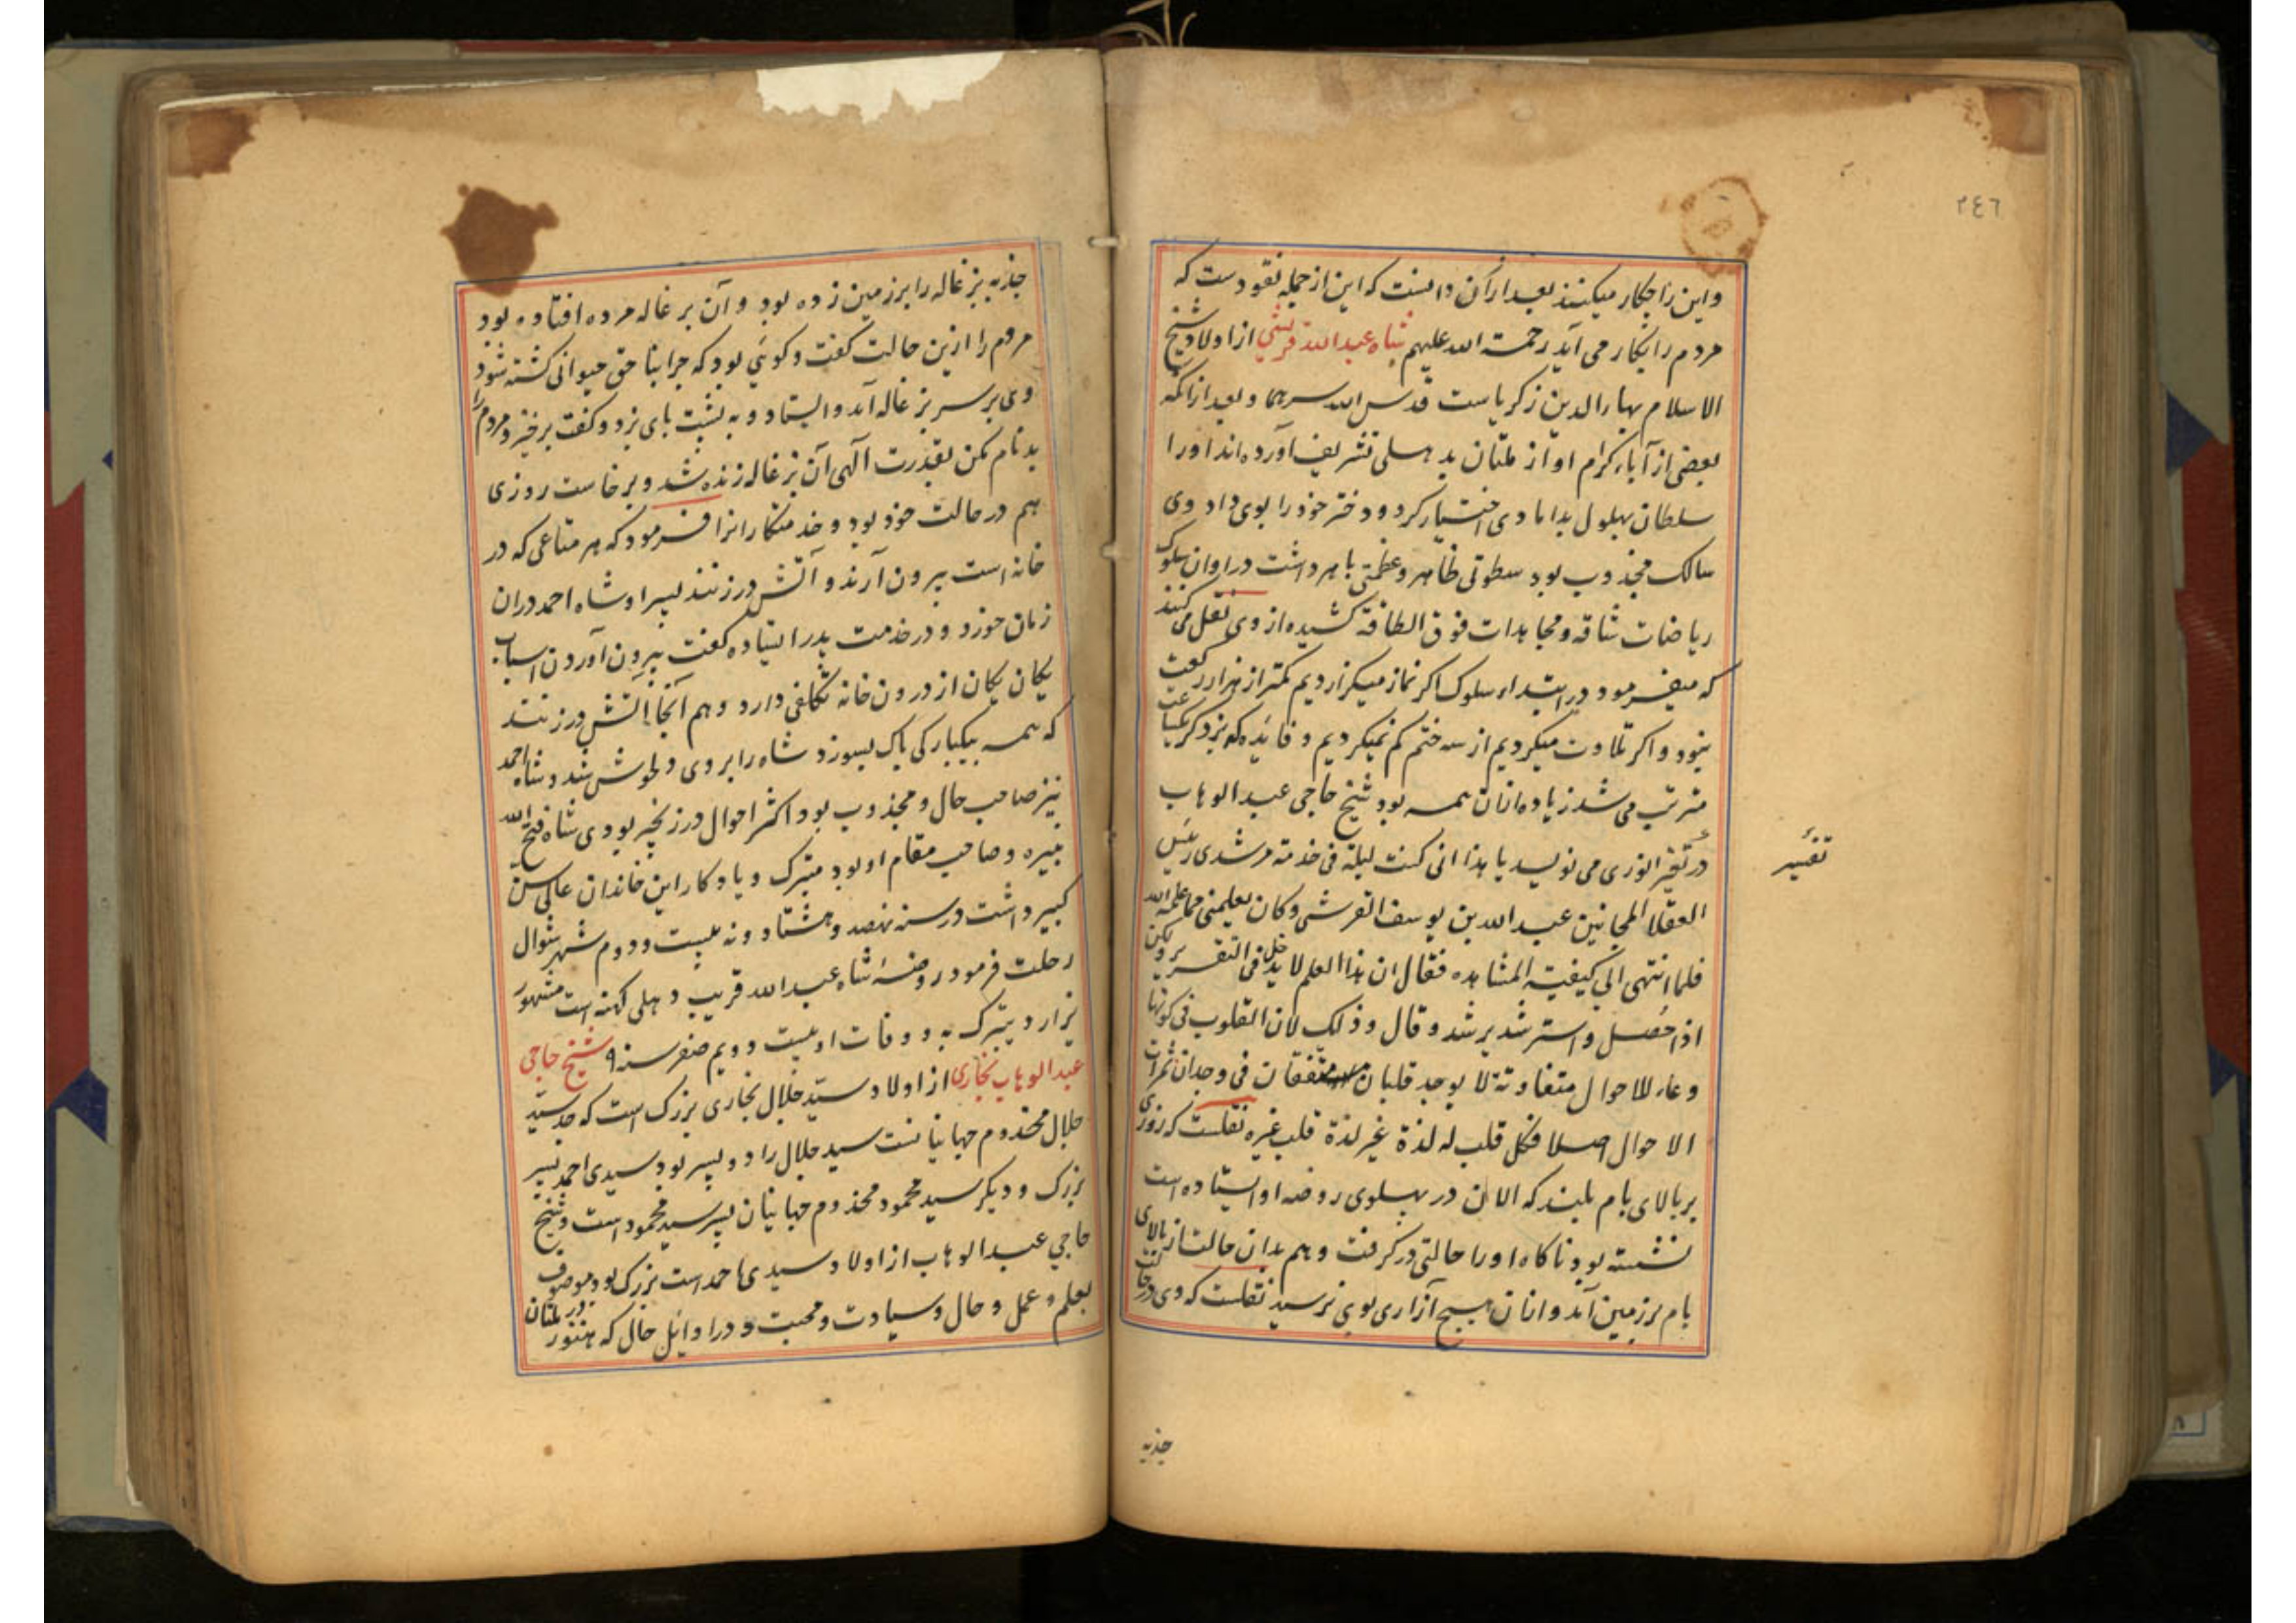 ٢٤٦
واین را چکار میکنند بعد ازان دانست که این از جمله نقود ست که
مردم را بکار می آید رحمة الله علیهم شاه عبدالله قریشی از اولاد شیخ
الاسلام بهاءالدین زکریاست قدس الله سرهما و بعد ازانکه
بعضی از آباء کرام او از ملتان بدهلی تشریف آورده اند اورا
سلطان بهلول بدامادی اختیار کرد و دختر خود را بوی داد وی
سالک مجذوب بود سطوتی ظاهر و عظمتی باهر داشت در اوان سلوک
ریاضات شاقه و مجاهدات فوق الطاقة کشیده از وی نقل می کنند
که میفرمود در ابتداء سلوک اکر نماز میکزاردیم کمتر از هزار رکعت
نبود و اکر تلاوت میکردیم از سه ختم کم نمیکردیم و فائده که بر ذکر
مترتب می شد زیاده ازان همه بود شیخ حاجی عبدالوهاب
در تفسیر النوری می نویسد یا هذا انی کنت لیلة فی خدمة مرشدی رئیس
تفسیر
العقلا المجانین عبدالله بن یوسف القرشی و کان یعلمنی مما علمه الله
فلما انتهی الی کیفیة المشاهده فقال ان هذا العلم لا یدخل فی التقریر ولکن
اذا حصل واسترشد یرشد و قال و ذلک لان القلوب فی کونها
وعاء للاحوال متفاوتة لا یوجد قلبان متفقان فی وجدان ثمرات
الاحوال اصلا فکل قلب له لذة غیر لذة قلب غیره نقلست که روزی
بر بالای بام بلند که الان در پهلوی روضه او ایستاده است
نشسته بود ناکاه اورا حالتی درکرفت و هم بدان حالت از بالای
بام بر زمین آمد و ازان هیچ آزاری بوی نرسید نقلست که وی در حالت
جذبه
جذبه بزغاله را بر زمین زده بود و آن بزغاله مرده افتاده بود
مردم را ازین حالت کفت و کوئی بود که چرا بناحق حیوانی کشته شود
وی بر سر بزغاله آمد و ایستاد و به پشت پای بزد و کفت برخیز و مردم را
بدنام مکن بقدرت آلهی آن بزغاله زنده شد و برخاست روزی
هم در حالت خود بود و خدمتکارانرا فرمود که هر متاعی که در
خانه است بیرون آرند و آتش درزنند پسر او شاه احمد دران
زمان خورد و در خدمت پدر ایستاده کفت بیرون آوردن اسباب
یکان یکان از درون خانه تکلفی دارد و هم آنجا آتش درزنند
که همه بیکبارکی پاک بسوزد شاه را بر وی دلخوش شد و شاه احمد
نیز صاحب حال و مجذوب بود اکثر احوال در زنجیر بودی شاه فتح الله
نبیره و صاحب مقام او بود متبرک و یادکار این خاندان عالی سن
کبیر داشت در سنه نهصد و هشتاد و نه بیست و دوم شهر شوال
رحلت فرمود روضهٔ شاه عبدالله قریب دهلی کهنه است مشهور
یزار و یتبرک به و وفات او بیست و دویم صفر سنه ۹ شیخ حاجی
عبدالوهاب بخاری از اولاد سید جلال بخاری بزرک است که جد سید
جلال مخدوم جهانیانست سید جلال را دو پسر بود سیدی احمد پسر
بزرک و دیکر سید محمود مخدوم جهانیان پسر سید محمود است و شیخ
حاجی عبدالوهاب از اولاد سیدی احمد است بزرک بود موصوف
بعلم و عمل و حال و سیادت و محبت و در اوائل حال که هنوز در ملتان